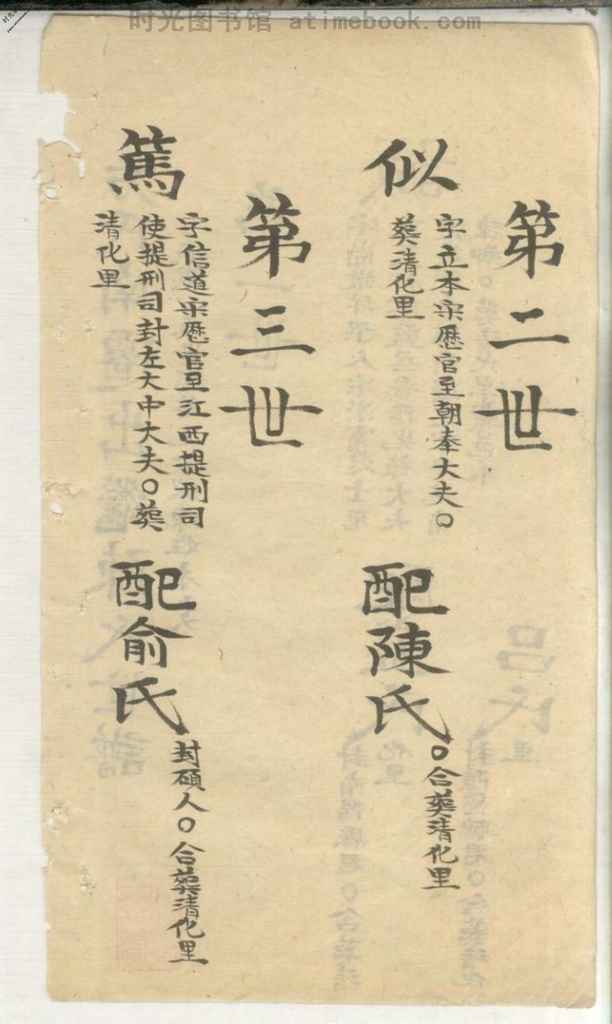 时光图书馆 atimebook.com
第二世
似
字立本宋歷官至朝奉大夫○
葬清化里
配陳氏
○合葬清化里
第三世
篤
字信道宋歷官至江西提刑司
使提刑司封左大中大夫○葬
清化里
配俞氏
封碩人○合葬清化里